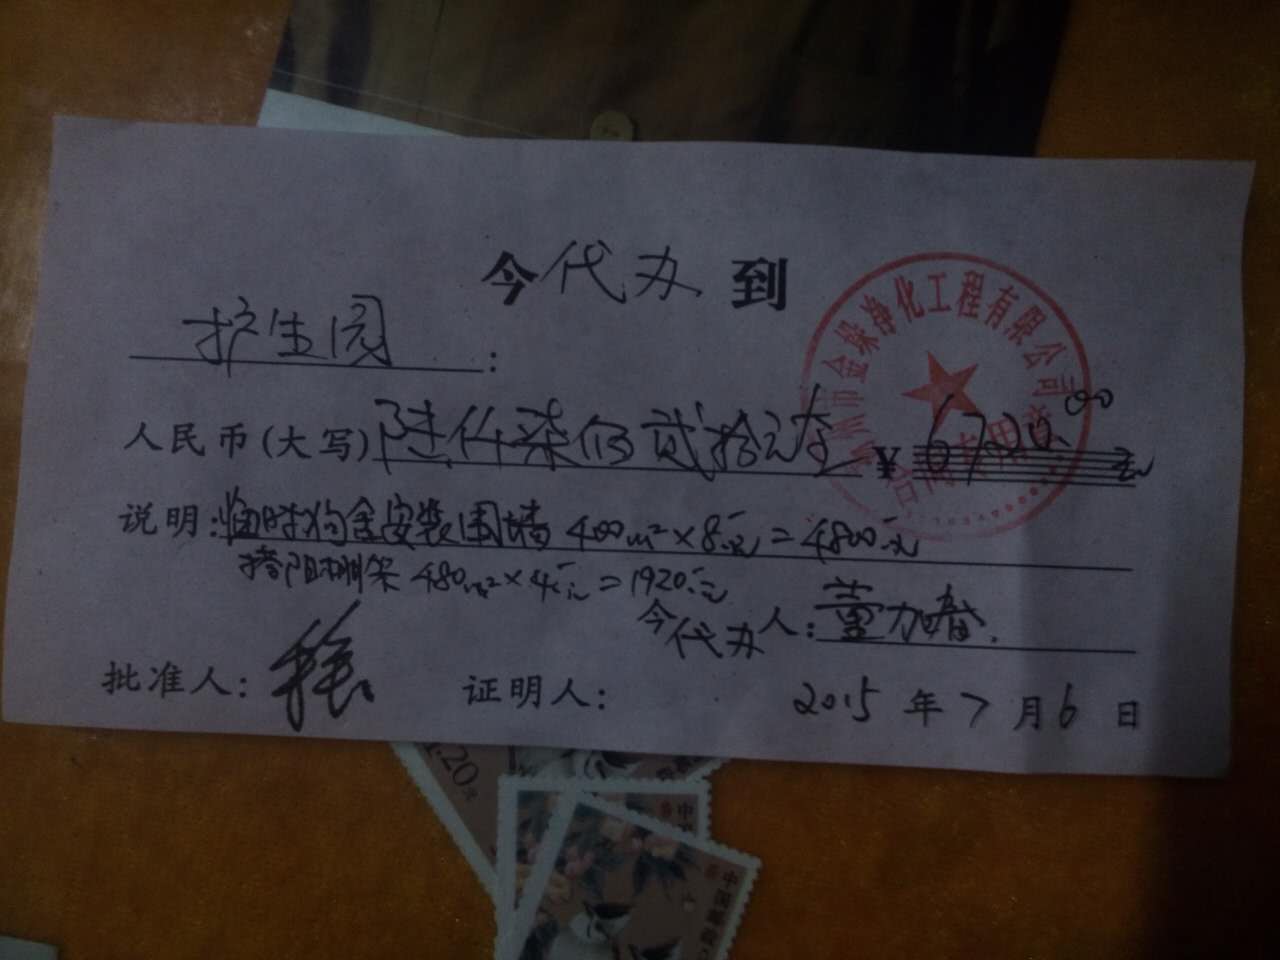 今代办到
护生园:
人民币(大写)陆仟柒佰贰拾元整 ¥6720.00元
说明:临时狗舍安装围墙 400m²×8元=4800元
搭阳棚架 480m²×4元=1920元
今代办人:董加春
批准人: 证明人: 2015年7月6日
州市金 净化工程有限公司
合同专用
1.20元
中国邮政